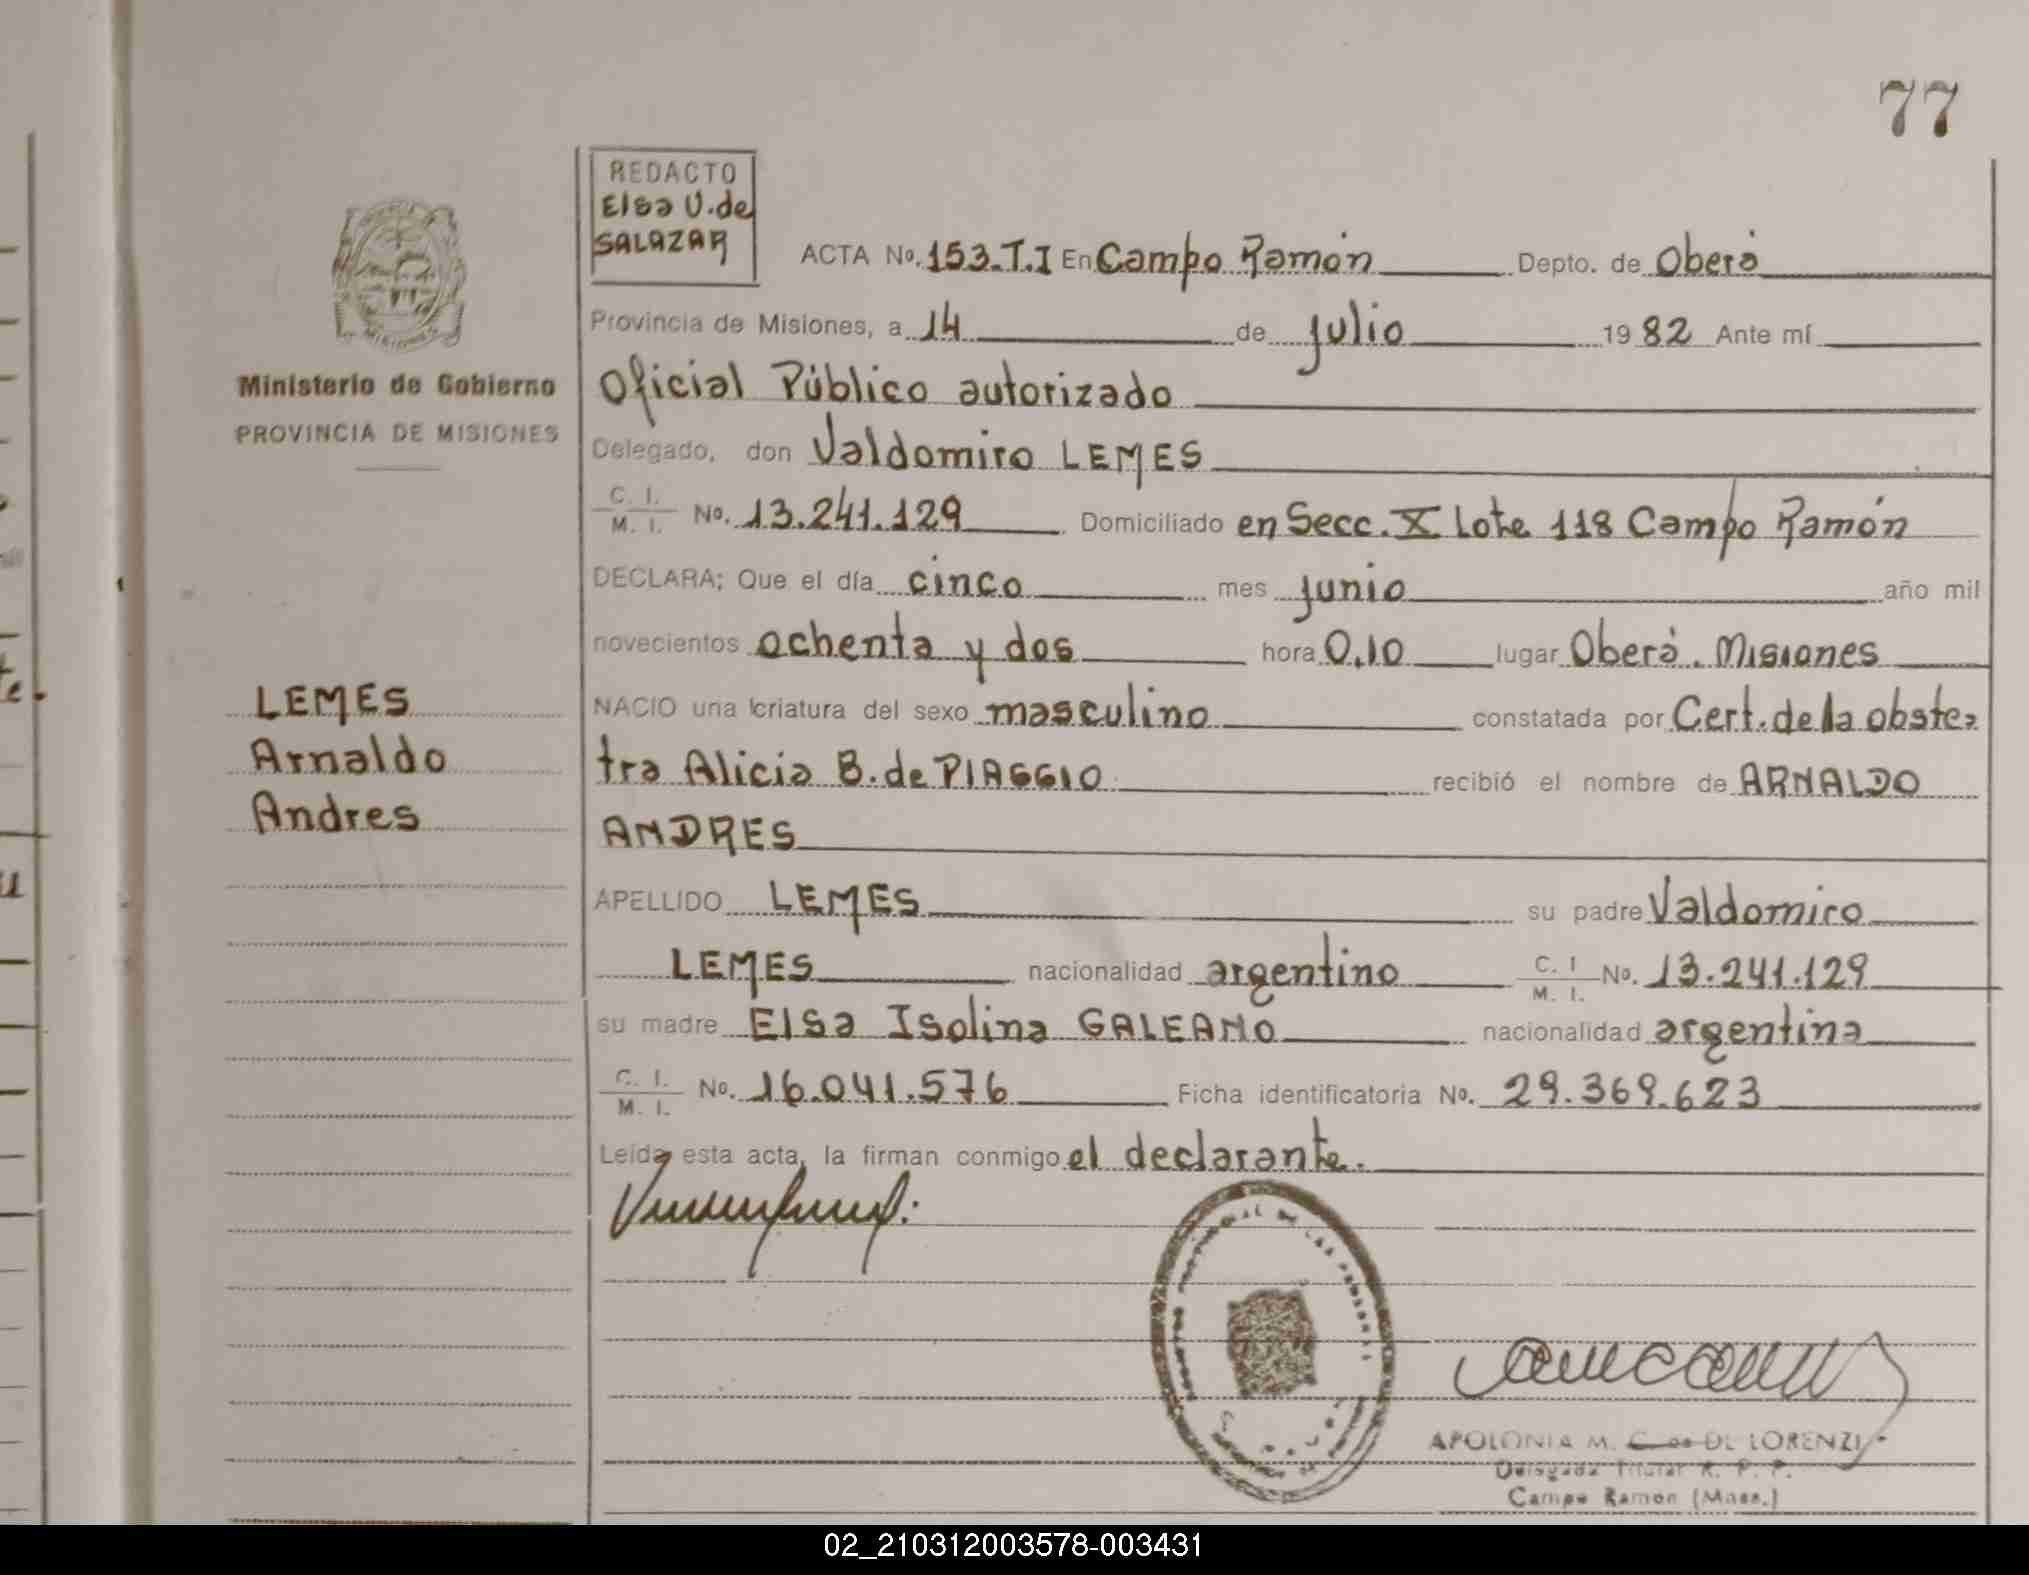 77
REDACTO
Elsa V. de
SALAZAR
ACTA No. 153.T.I En Campo Ramón Depto. de Oberá
Provincia de Misiones, a 14 de julio 1982 Ante mí
Ministerio de Gobierno
PROVINCIA DE MISIONES
Oficial Público autorizado
Delegado, don Valdomiro LEMES
C. I.
M. I. No. 13.241.129 Domiciliado en Secc. X Lote 118 Campo Ramón
DECLARA; Que el día cinco mes junio año mil
novecientos ochenta y dos hora 0,10 lugar Oberá. Misiones
LEMES
Arnaldo
Andres
NACIO una criatura del sexo masculino constatada por Cert. de la obste=
tra Alicia B. de PIAGGIO recibió el nombre de ARNALDO
ANDRES
APELLIDO LEMES su padre Valdomiro
LEMES nacionalidad argentino C. I. M. I. No. 13.241.129
su madre Elsa Isolina GALEANO nacionalidad argentina
C. I.
M. I. No. 16.041.576 Ficha identificatoria No. 29.369.623
Leída esta acta, la firman conmigo el declarante.
APOLONIA M. C. de DE LORENZI
Delegada Titular R. P. P.
Campo Ramon (Mnes.)
02_210312003578-003431